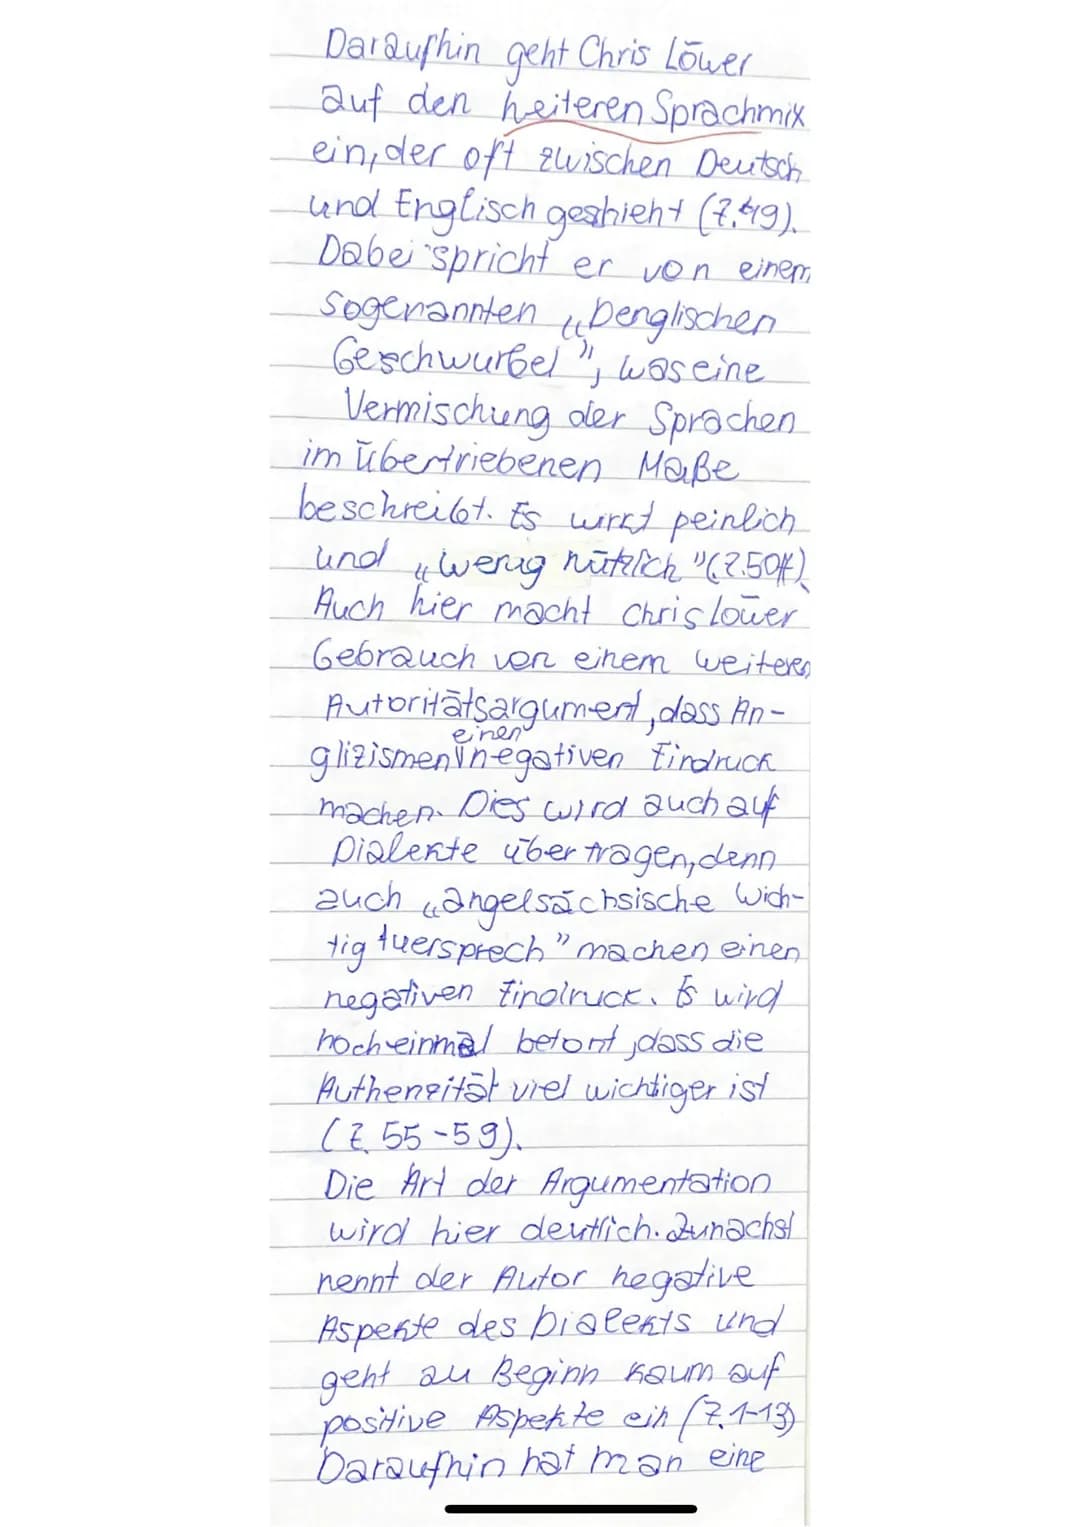 Daraufhin geht Chris Löwer
auf den heiteren Sprachmix
ein, der oft zwischen Deutsch
und Englisch geshieht (Z.49).
Dabei spricht er von einem
sogenannten „Denglischen
Geschwurbel", was eine
Vermischung der Sprachen
im übertriebenen Maße
beschreibt. Es wirkt peinlich
und „wenig nützlich" (Z.50ff).
Auch hier macht Chris Löwer
Gebrauch von einem weiteren
Autoritätsargument, dass An-
glizismen einen negativen Eindruck
machen. Dies wird auch auf
Dialekte übertragen, denn
auch „angelsächsische Wich-
tigtuersprech" machen einen
negativen Eindruck. Es wird
noch einmal betont, dass die
Authenzität viel wichtiger ist
(Z. 55-59).
Die Art der Argumentation
wird hier deutlich. Zunächst
nennt der Autor negative
Aspekte des Dialekts und
geht zu Beginn kaum auf
positive Aspekte ein (Z.1-13)
Daraufhin hat man eine